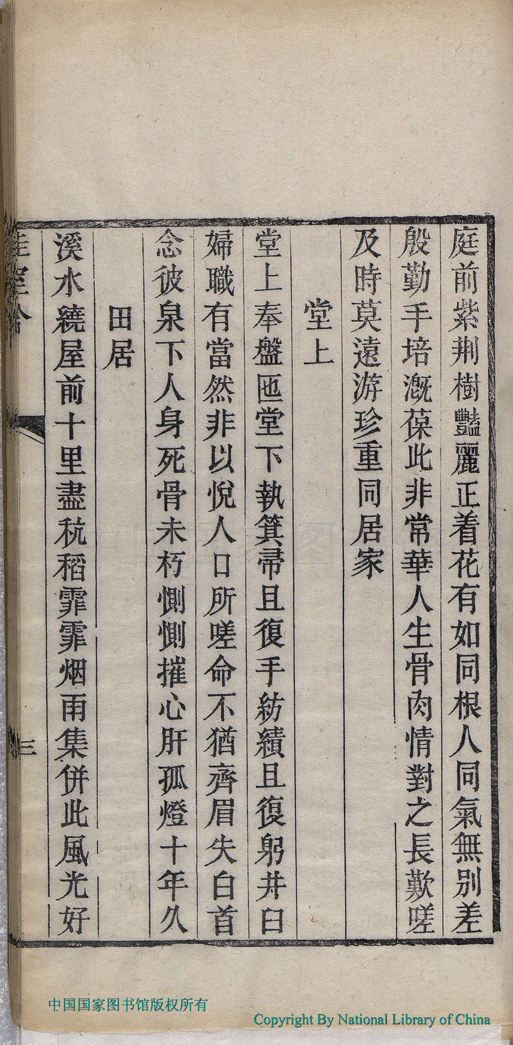 庭前紫荆樹豔麗正着花有如同根人同氣無別差
殷勤手培溉葆此非常華人生骨肉情對之長歎嗟
及時莫遠游珍重同居家
堂上
堂上奉盤匜堂下執箕帚且復手紡績且復躬井臼
婦職有當然非以悅人口所嗟命不猶齊眉失白首
念彼泉下人身死骨未朽惻惻摧心肝孤燈十年久
田居
溪水繞屋前十里盡秔稻霏霏烟雨集併此風光好
三
中国国家图书馆版权所有
Copyright By National Library of China